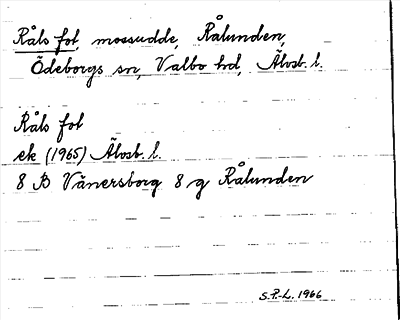 Råls fot, mossudde, Rålunden,
Ödeborgs sn, Valbo hd, Älvsb. l.
Råls fot
ek (1965) Älvsb. l.
8 B Vänersborg 8 g Rålunden
S.P.-L. 1966